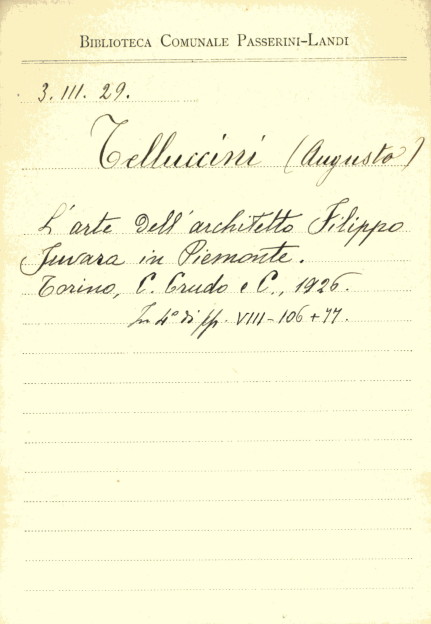 BIBLIOTECA COMUNALE PASSERINI-LANDI
3. III. 29.
Telluccini (Augusto)
L'arte dell'architetto Filippo
Juvara in Piemonte.
Torino, C. Crudo e C., 1926.
In 4° di pp. VIII-106+77.